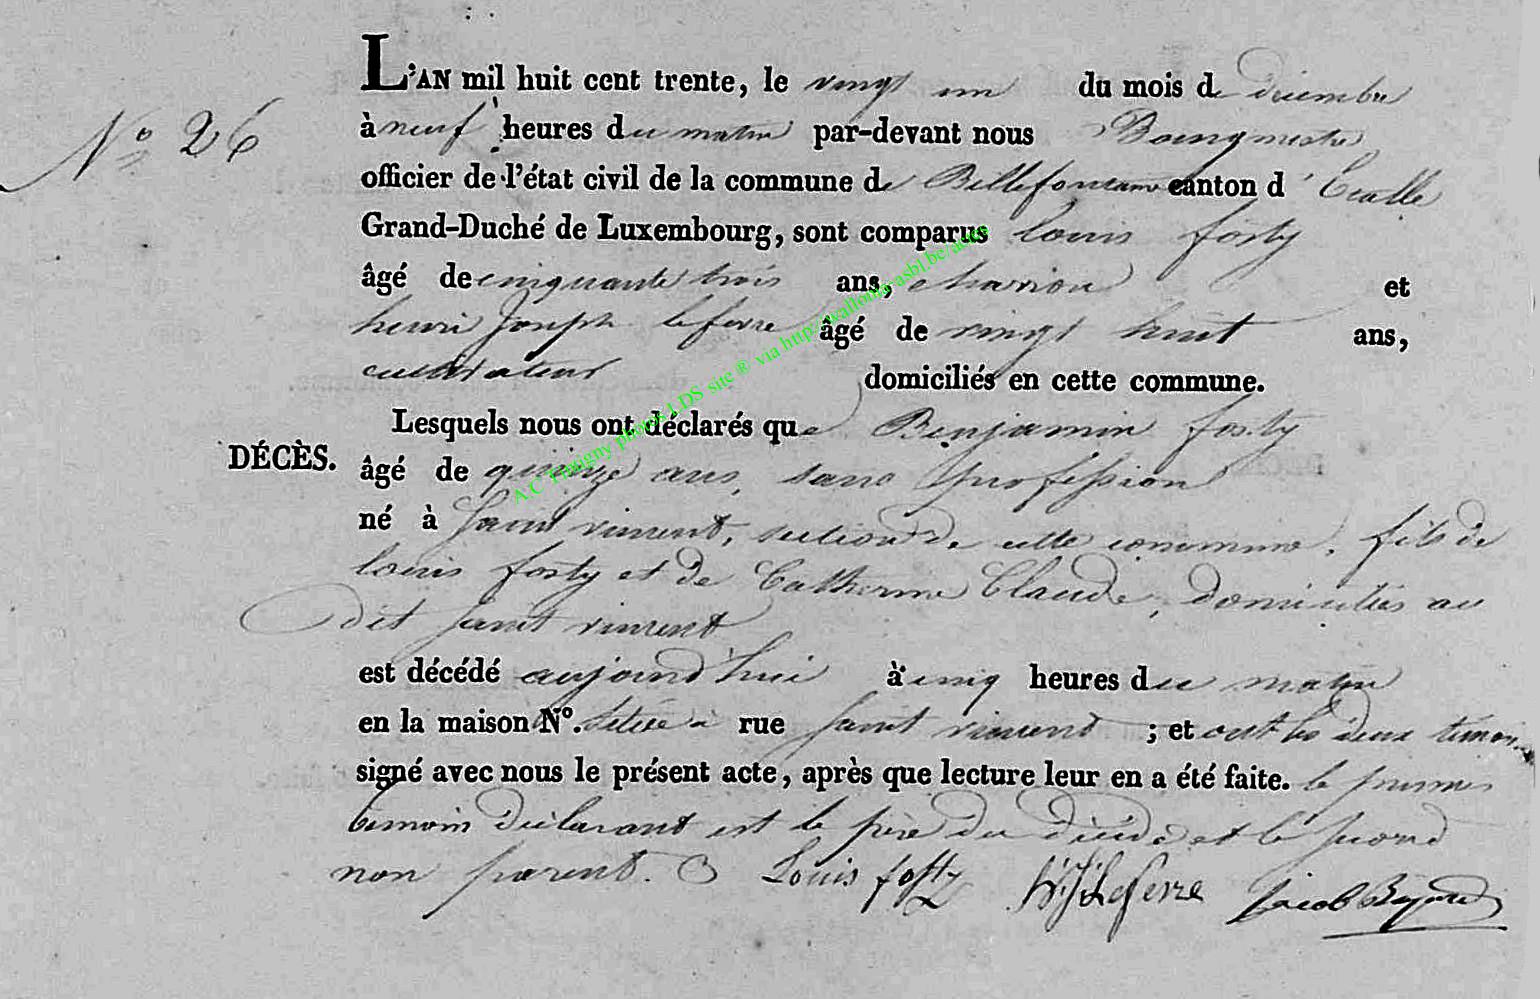 L'AN mil huit cent trente, le vingt un du mois de décembre
N° 26
à neuf heures du matin par-devant nous Bourgmestre
officier de l'état civil de la commune de Bellefontaine canton d'Etalle
Grand-Duché de Luxembourg, sont comparus louis fosty
âgé de cinquante trois ans, charron et
henri Joseph lefevre âgé de vingt huit ans,
cultivateur domiciliés en cette commune.
Lesquels nous ont déclarés que Benjamin fosty
DÉCÈS.
âgé de quinze ans, sans profession
né à Saint vincent, section de cette commune, fils de
louis fosty et de Catherine Claude, domiciliés au
dit saint vincent
est décédé aujourd'hui à cinq heures du matin
en la maison N°. située à rue saint vincent ; et ont les deux témoins
signé avec nous le présent acte, après que lecture leur en a été faite. le premier
temoin déclarant est le père du décédé et le second
non parent. Louis fosty H.J. Lefevre Jacob
A.C Tintigny photos LDS site ® via http://wallonia-asbl.be/actes